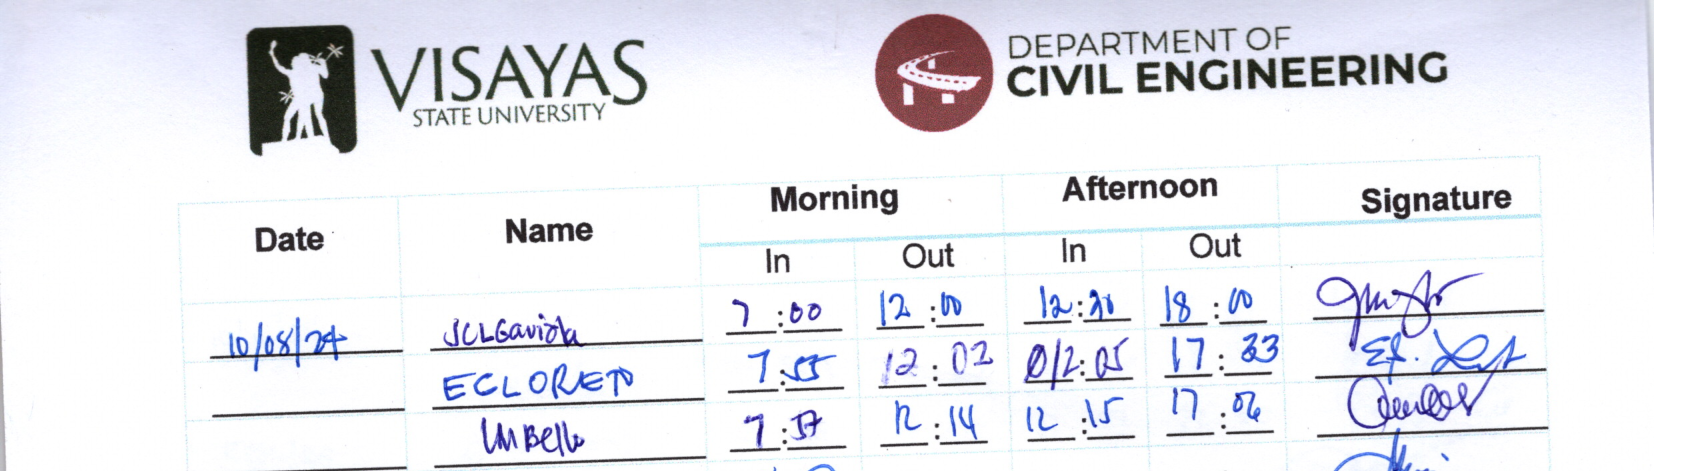 VISAYAS
STATE UNIVERSITY
DEPARTMENT OF
CIVIL ENGINEERING
Date Name Morning Afternoon Signature
In Out In Out
10/08/24 JCLGaviola 7:00 12:00 12:30 18:00
ECLORETO 7:55 12:02 12:05 17:33
UMBello 7:57 12:14 12:15 17:06